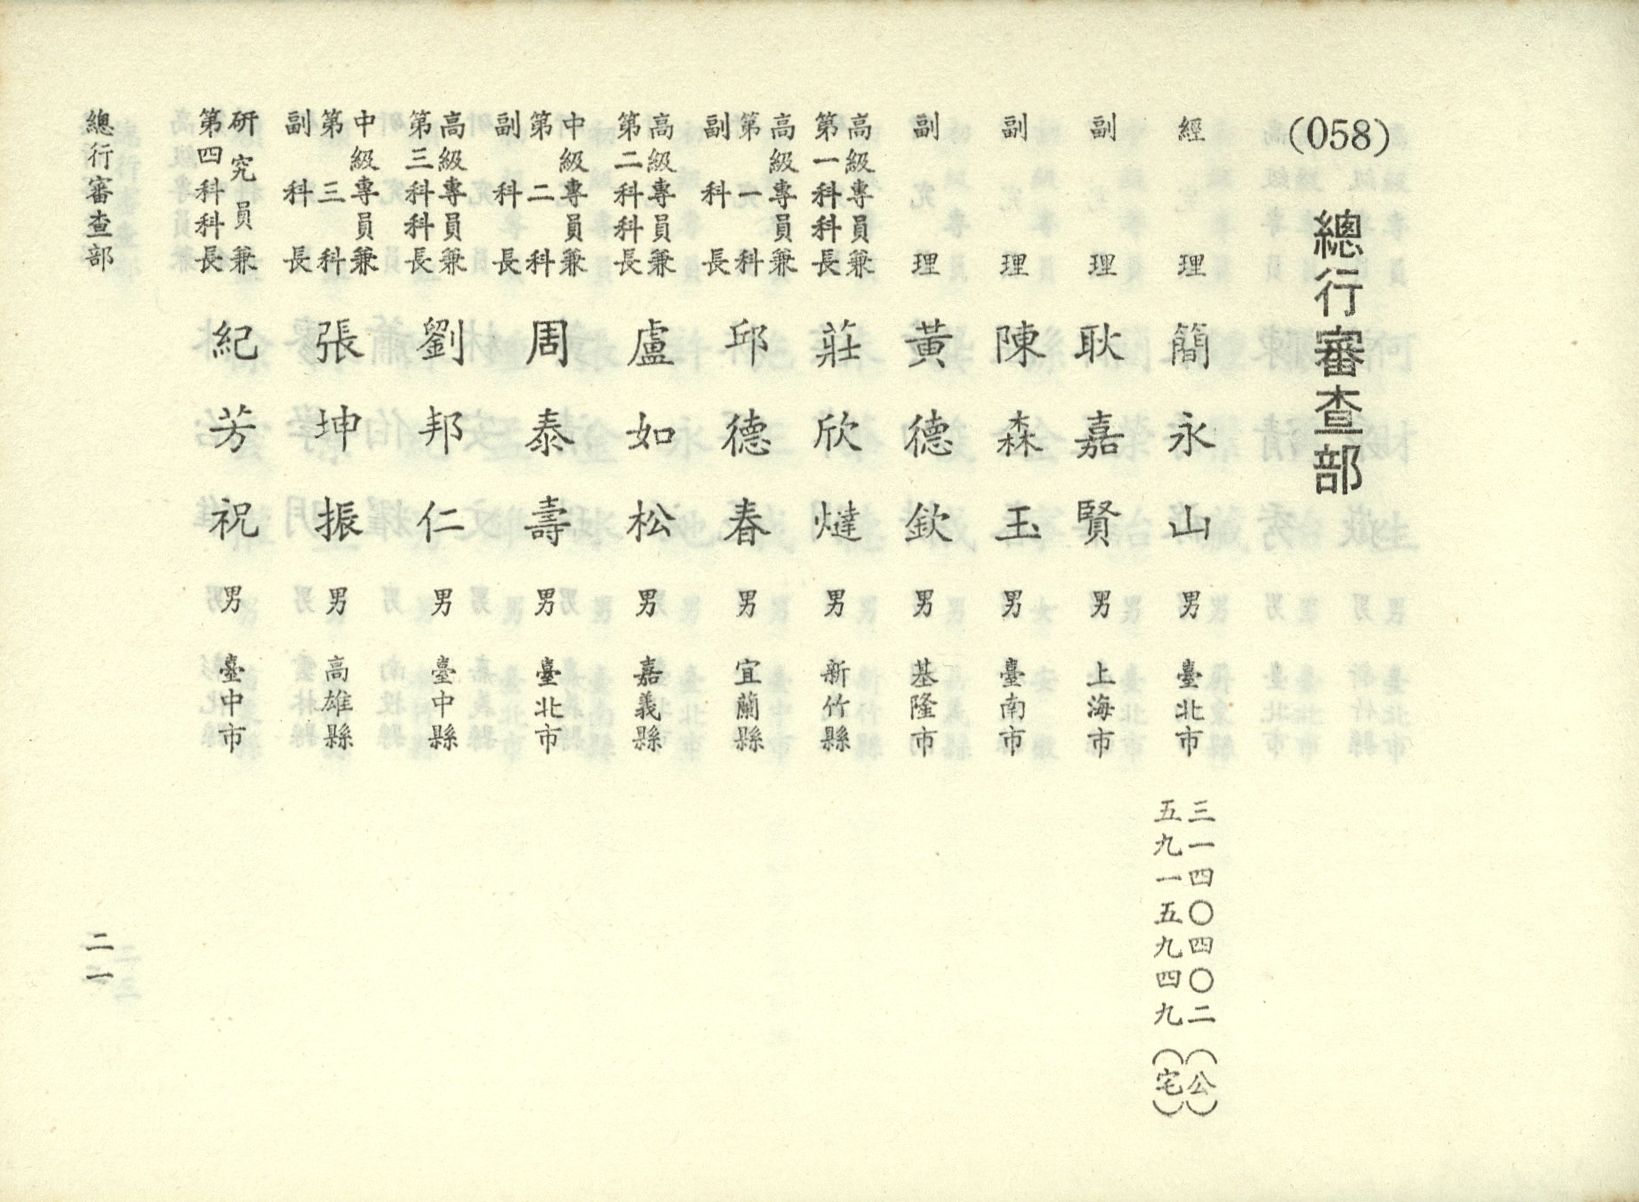 (058)
總行審查部
經理 簡永山 男 臺北市 三一四〇四〇二(公)
五九一五九四九(宅)
副理 耿嘉賢 男 上海市
副理 陳森玉 男 臺南市
副理 黃德欽 男 基隆市
高級專員兼
第一科科長 莊欣燵 男 新竹縣
高級專員兼
第一科
副科長 邱德春 男 宜蘭縣
高級專員兼
第二科科長 盧如松 男 嘉義縣
中級專員兼
第二科
副科長 周泰壽 男 臺北市
高級專員兼
第三科科長 劉邦仁 男 臺中縣
中級專員兼
第三科
副科長 張坤振 男 高雄縣
研究員兼
第四科科長 紀芳祝 男 臺中市
總行審查部
二一